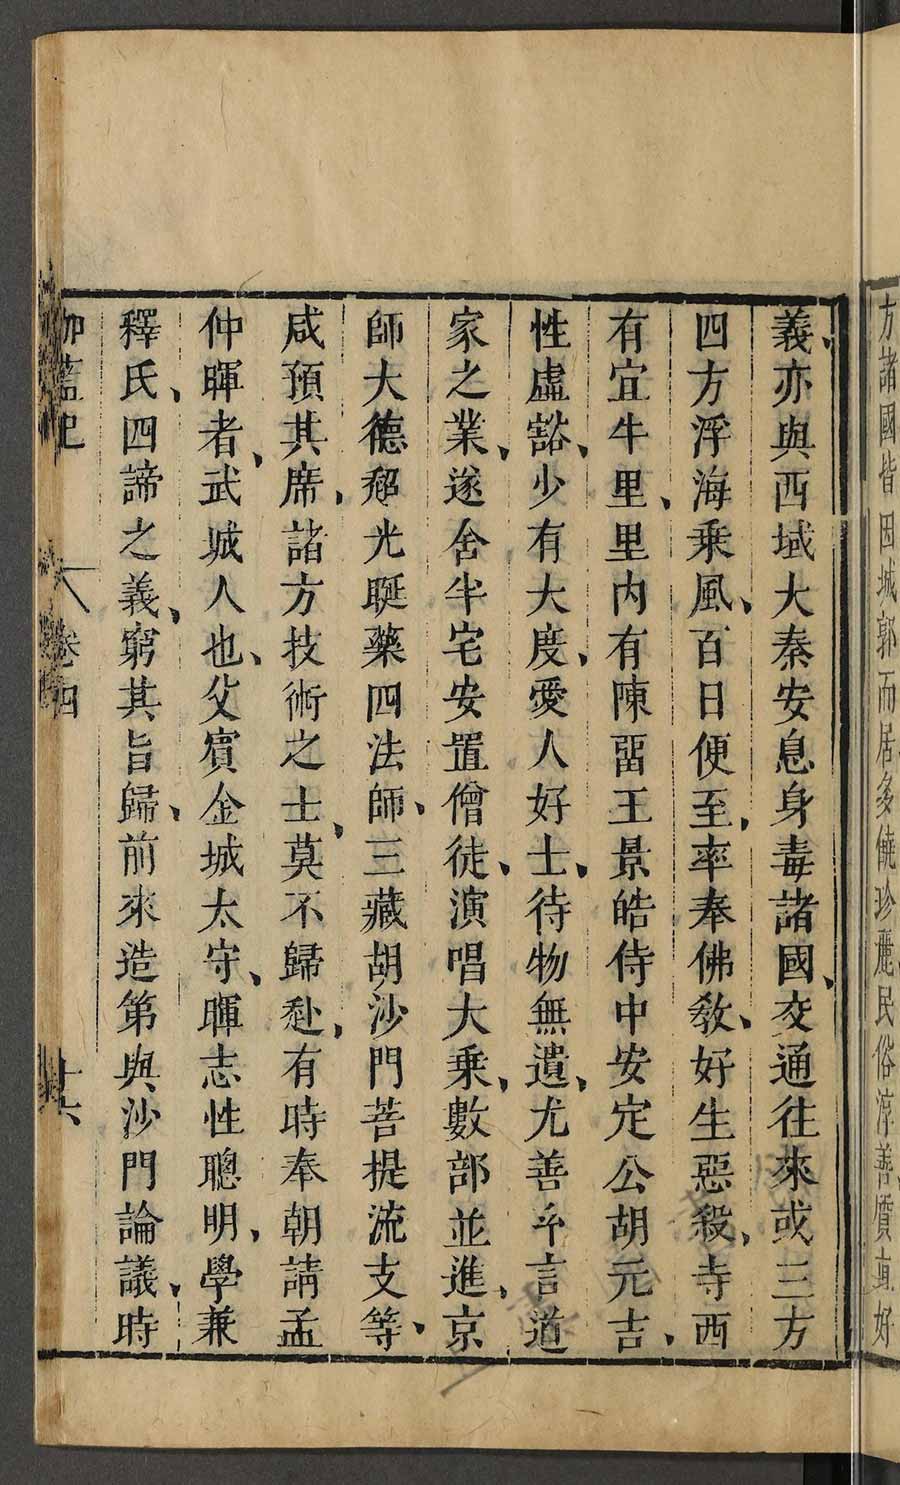 方諸國皆因城郭而居多饒珍麗民俗淳善質直好
義亦與西域大秦安息身毒諸國交通往來或三方
四方浮海乘風百日便至率奉佛教好生惡殺寺西
有宜牛里里内有陳畱王景皓侍中安定公胡元吉
性虛豁少有大度愛人好士待物無遺尤善玄言道
家之業遂舍半宅安置僧徒演唱大乘數部並進京
師大德超光䀼藥四法師三藏胡沙門菩提流支等
咸預其席諸方技術之士莫不歸赴有時奉朝請孟
仲暉者武城人也父賓金城太守暉志性聰明學兼
釋氏四諦之義窮其旨歸前來造第與沙門論議時
伽藍記 卷四 廿六